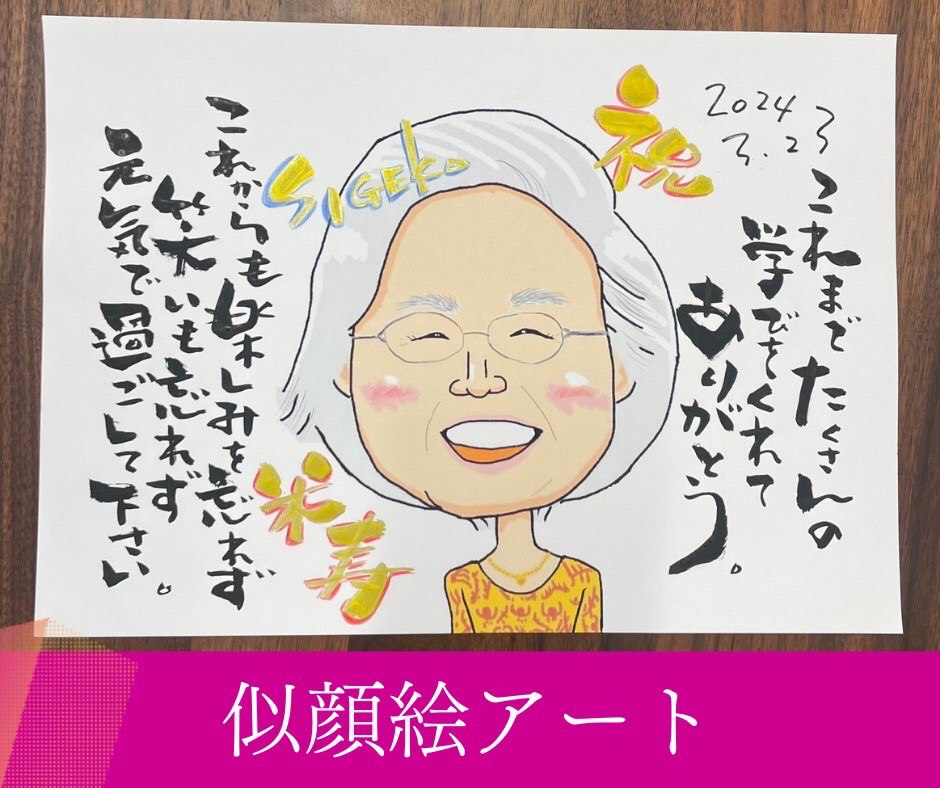 2024
3.23
祝
これまでたくさんの
学びをくれて
ありがとう。
SIGEKO
これからも楽しみを忘れず
笑いも忘れず
元気で過ごして下さい。
米寿
似顔絵アート